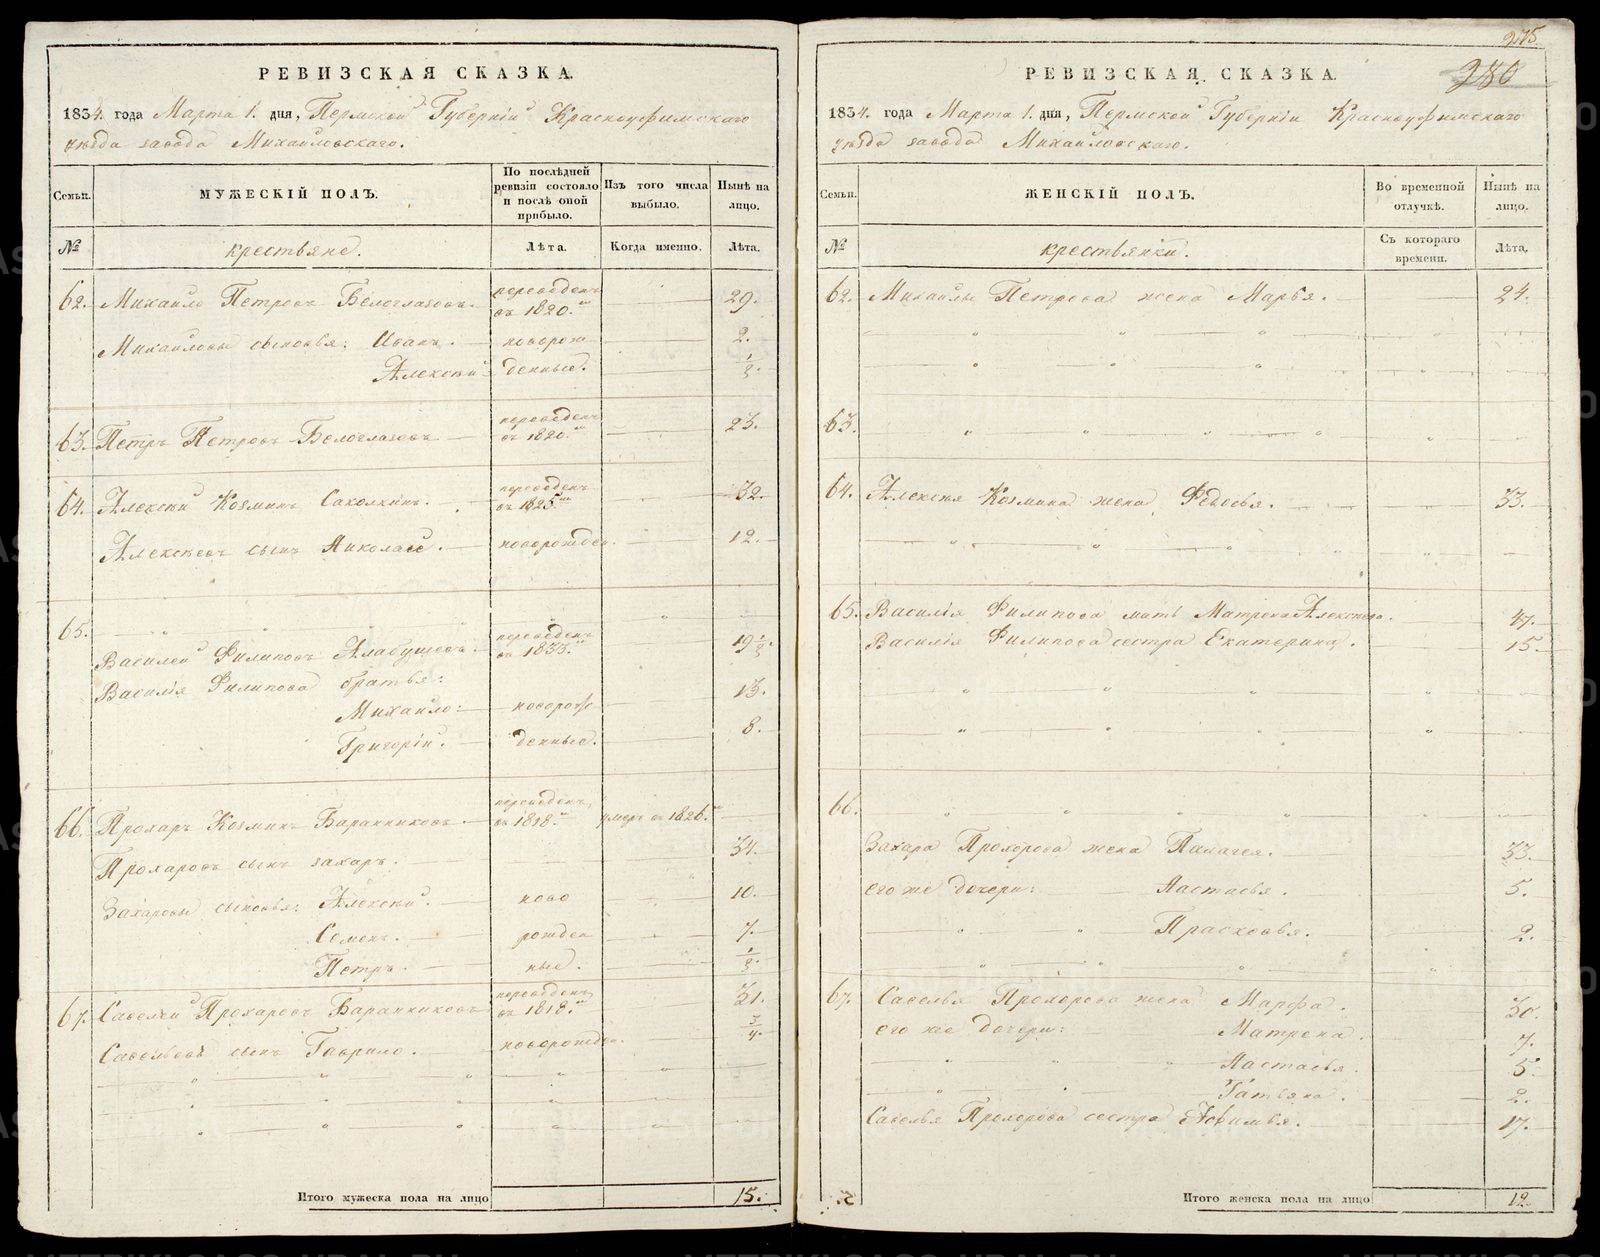 РЕВИЗСКАЯ СКАЗКА.
1834. года Марта 1. дня, Пермской Губерніи Красноуфимскаго
уѣзда завода Михайловскаго.
Семьи.
МУЖЕСКІЙ ПОЛЪ.
По послѣдней ревизіи состояло и послѣ оной прибыло.
Изъ того числа выбыло.
Нынѣ на лицо.
№
крестьяне.
Лѣта.
Когда именно.
Лѣта.
62. Михайло Петровъ Белоглазовъ. переведенъ въ 1820.мъ 29.
Михайловы сыновья: Иванъ. новорож 2.
Алексѣй денные. 1/2.
63. Петръ Петровъ Белоглазовъ переведенъ въ 1820.мъ 23.
64. Алексѣй Козминъ Саколкинъ. переведенъ въ 1825.мъ 32.
Алексѣевъ сынъ Николай. новорожден. 12.
65.
Василей Филиповъ Алабушевъ. переведенъ въ 1833.мъ 19 1/2.
Василія Филипова братья:
Михайло: новорож 13.
Григорій. денные. 8.
66. Прохаръ Козминъ Баранниковъ. переведенъ въ 1818.мъ умеръ въ 1826.мъ
Прохаровъ сынъ захаръ. 34.
Захаровы сыновья: Алексѣй. ново 10.
Семенъ. рожден 7.
Петръ. ные. 1/2.
67. Савелей Прохаровъ Баранниковъ переведенъ въ 1818.мъ 31.
Савельевъ сынъ Гаврило. новорожден. 3/4.
Итого мужеска пола на лицо 15.
275.
280
РЕВИЗСКАЯ СКАЗКА.
1834. года Марта 1. дня, Пермской Губерніи Красноуфимскаго
уѣзда завода Михайловскаго.
Семьи.
ЖЕНСКІЙ ПОЛЪ.
Во временной отлучкѣ.
Нынѣ на лицо.
№
крестьянки.
Съ котораго времени.
Лѣта.
62. Михайлы Петрова жена Марья. 24.
63.
64. Алексѣя Козмина жена Федосья. 33.
65. Василія Филипова мать Матрена Алексѣева. 47.
Василія Филипова сестра Екатерина. 15.
66.
Захара Прохорова жена Палагея. 33.
его же дочери: Настасья. 5.
Прасковья. 2.
67. Савелья Прохорова жена Марфа. 30.
его же дочери: Матрена. 7.
Настасья. 5.
Татьяна. 2.
Савелья Прохорова сестра Афимья. 17.
Итого женска пола на лицо 12.